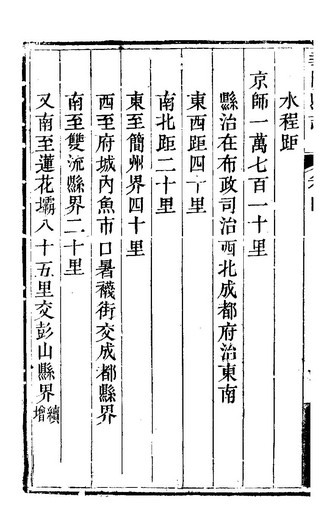 水程距
京師一萬七百一十里
縣治在布政司治西北成都府治東南
東西距四十里
南北距二十里
東至簡州界四十里
西至府城內魚市口暑襪街交成都縣界
南至雙流縣界二十里
又南至蓮花壩八十五里交彭山縣界續增